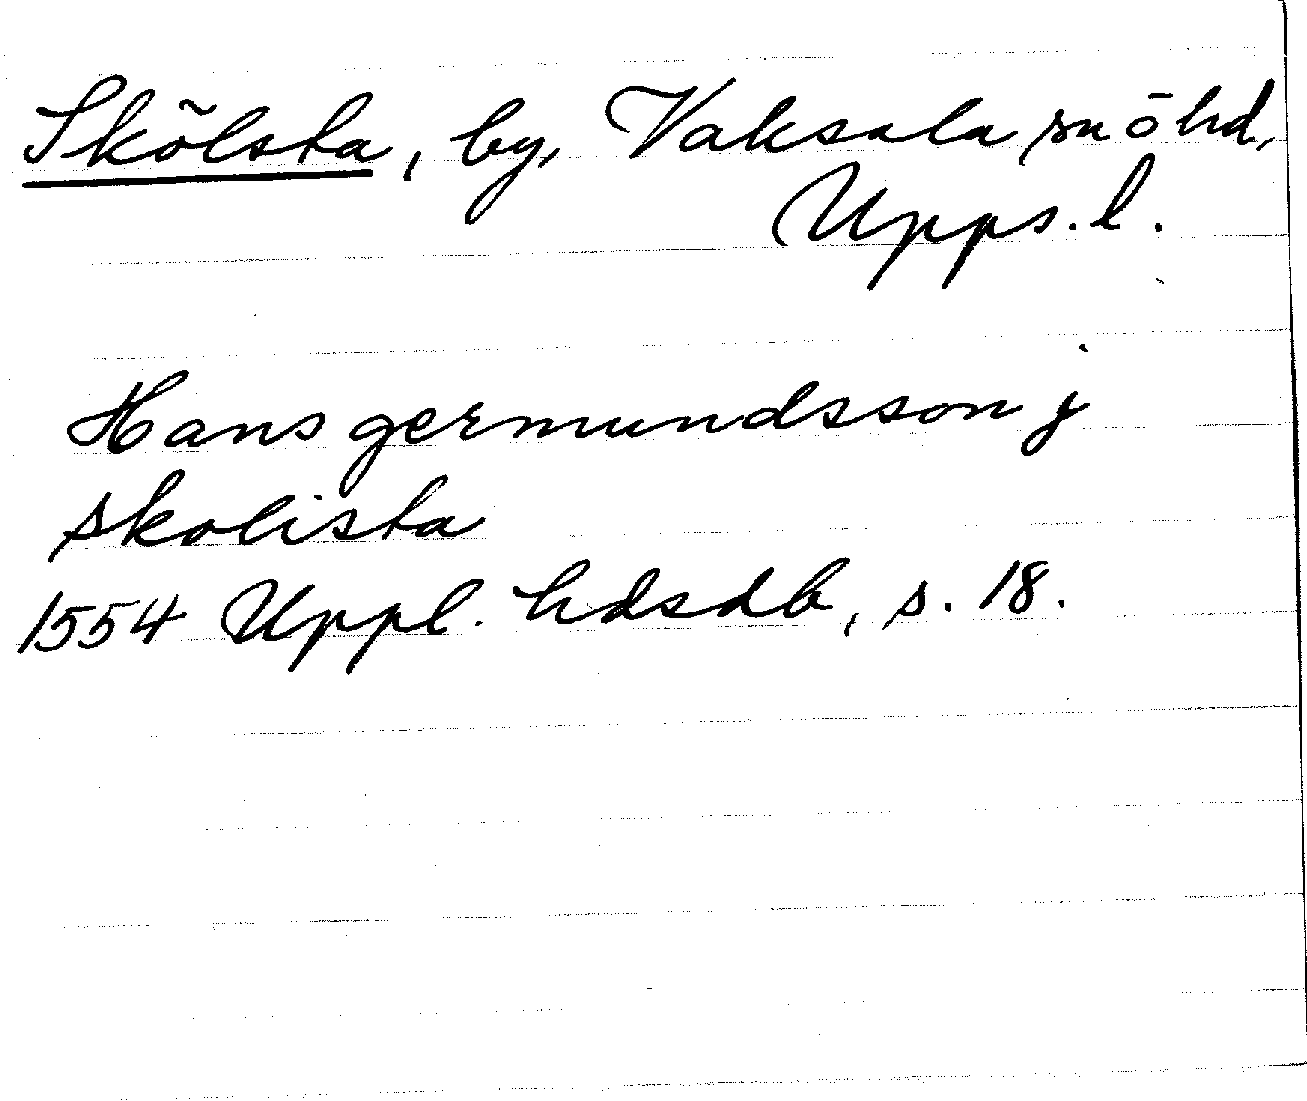 Skölsta, by, Vaksala sn ō hd,
Upps. l.
Hans germundsson j
skolista
1554 Uppl. hdsdb, s. 18.